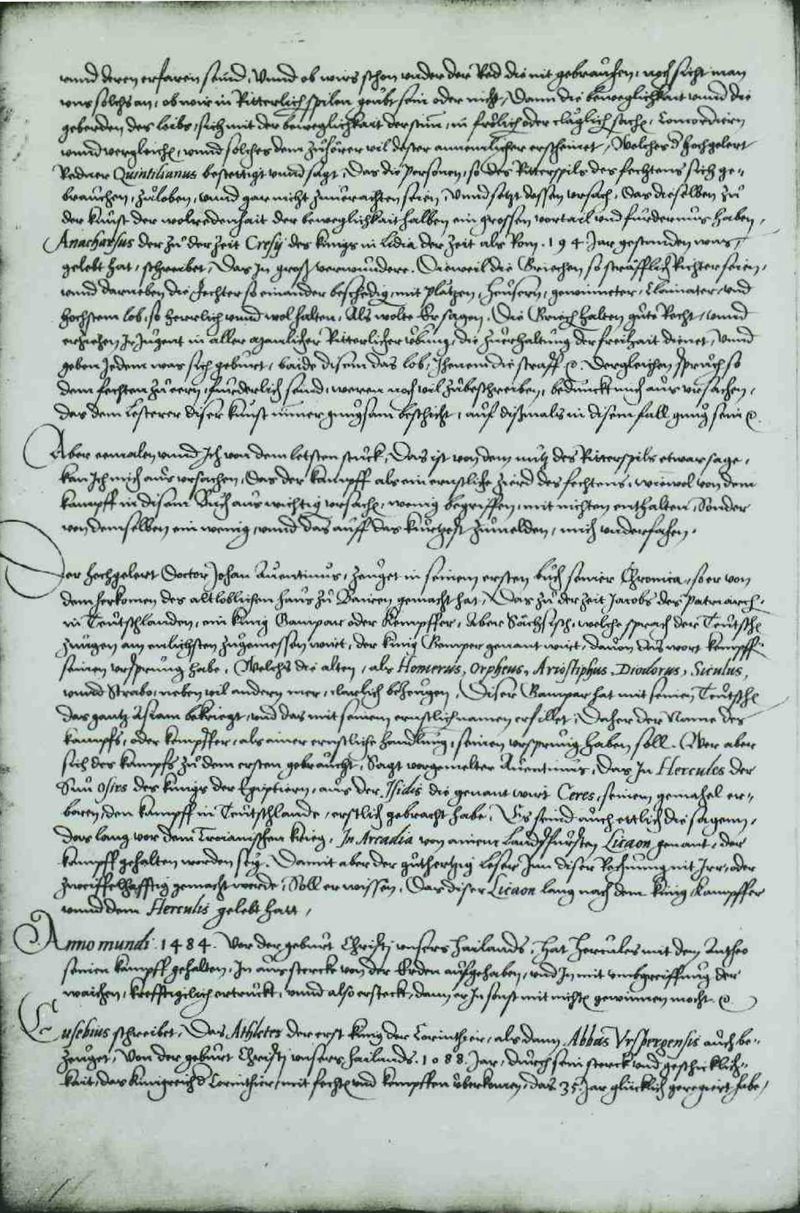 unnd deren erfaren seind, Unnd ob wirs schon under der Red die nit gebrauchen, noch sicht man
uns solchs an, ob wir in Ritterlich spilen geubt sein oder nicht, Dann die beweglichkait unnd die
geberden des leibs, sich mit der beweglichkait der stim, in frölich oder cläglich sache, Concordiern
unnd vergleichn, unnd solches dem zuhörer vil dester annemlicher erscheinet, Welches d hochgelert
Redner Quintilianus bestettigt unnd sagt, Das die personen, so des Ritterspils des fechtens sich ge-
brauchen, zuloben, unnd gar nicht zuverachten seien, Unnd setzt dessen ursach, das dieselben zu
der kunst der wolredenhait der beweglichkait halben ein grossen vortail und furdernus haben,
Anacharsus der zu der zeit Cresy des kinigs in Lidia der zeit als Rom .194. Jar gestanden was,
gelebt hat, schreibet, Das In groß verwundere. Dieweil die Griechen so sträfflich Richter seien,
unnd darneben die fechter so einander beschedig, mit plätzen, heusern, und
hochstem lob, so herrlich unnd wol halten, Als wolte Er sagen, Die Griech halten gute Recht, unnd
erziehen Ir Jugent in aller Ritterlicher übung, die zuerhaltung der freihait dienet, Unnd
geben Jedem was sich geburt, baide disem das lob, Jhenem die straff &c. Dergleichen spruch so
dem fechten zu eern, furderlich seind, weren noch vil zubeschreiben, bedunckt mich aus ursachen,
das dem Lesterer diser kunst nimer gnugsam beschicht, auf dißmals in disem fall gnug sein &c.
Aber eemalen unnd Ich von dem letsten stuck, Das ist von dem nutz des Ritterspils etwas sage,
kan Ich mich aus ursachen, das der kampff als ein ernstliche zierd des fechtens, wiewol von dem
kampff in disem Buch aus wichtig ursachn, wenig begriffen, mit nichten enthalten, Sonder
von demselben ein wenig, unnd das auff das kurtzest zumelden, mich underfahen.
Der hochgelert Doctor Johan Aventinus, zeuget in seinem ersten buch seiner Chronica, so er von
dem herkomen des altloblichen haus zu Bairen gemacht hat, Das zu der zeit Jacobs des Patriarch-
in Teutschlanden, ein kinig Gampar oder Kempffer, Aber Sächsisch, welche sprach der Teutschn
zungen am enlichsten zugemessen wirt, der kinig Kemper genant wirt, davon das wort kempff-
seinen ursprung habe, Welchs die alten, als Homerus, Orpheus, Aristiphus, Diodorus, Siculus,
unnd Strabo, neben vil andern mer, clarlich bezeugen, Diser Gampar hat mit seinen Teutschn
das gantz Asiam bekriegt, und das mit seinem ernstlich namen erfillet, Daher der Name des
kampfs, oder kempffer, als einer ernstliche handlung, seinen ursprung haben soll. Wer aber
sich des kampfs zu dem ersten gebraucht, Sagt vorgemelter Aventinus, Das In Hercules der
Sun Osiris des kinigs der Egiptiern, aus der Isidis die genant wirt Ceres, seinem gemahel er-
boren, den kampff in Teutschlande, erstlich gebracht habe, Es seind auch ettlich die sagenn,
das lang vor dem Troianischen krieg, In Arcadia von ainem Landsfursten Licaon genant, der
kampff gehalten worden sey. Damit aber der guthertzig leser Inn diser Rechnung nit Irr, oder
zweiffelhafftig gemacht werde, Soll er wissen, Das diser Licaon lang nach dem kinig Kampffer
unnd dem Herculis gelebt hatt,
Anno mundi .1484. Vor der geburt Christi unsers hailands, hat Hercules mit dem Antheo
seinen kampff gehalten, In aus stercke von der Erden aufgehaben, und In mit umbgreiffung der
waichen, krefftigclich ertruckt, unnd also ersteckt, dann er In sonst mit nichtn gewinnen mocht. &c
Eusebius schreibet, Das Athletes der erst kinig der Corinthier, als dann Abbas Urspergensis auch be-
zeuget, Von der geburt Christi unsers hailands .1088. Jar, durch sein sterck und geschicklich-
kait, das kinigreich d Corinthier, mit fechtn und kempffen uberkomen, das 35 Jar glücklich geregiert habe,